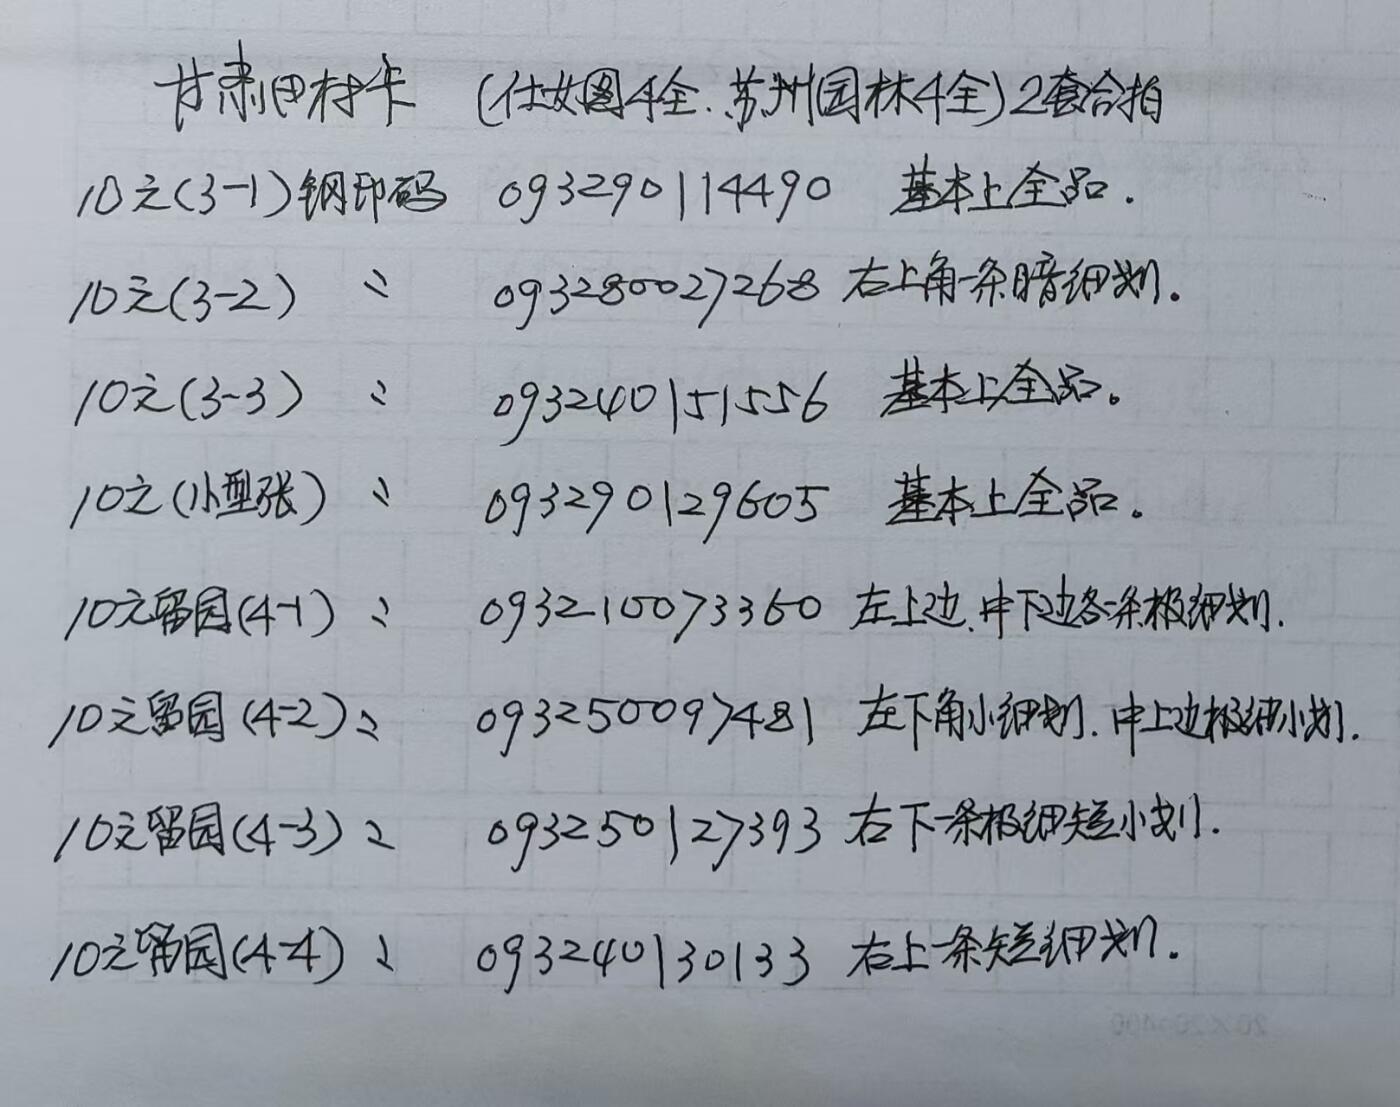 甘肃田村卡 (仕女图4全.苏州园林4全)2套合拍
10元(3-1)钢印码 093290114490 基本上全品.
10元(3-2) 〃 093280027268 右上角一条暗细划.
10元(3-3) 〃 093240151556 基本上全品。
10元(小型张) 〃 093290129605 基本上全品。
10元留园(4-1) 〃 093210073360 左上边.中下边各一条极细划.
10元留园(4-2) 〃 093250097481 左下角小细划.中上边极细小划.
10元留园(4-3) 〃 093250127393 右下一条极细短小划.
10元留园(4-4) 〃 093240130133 右上一条短细划.
20×20=400